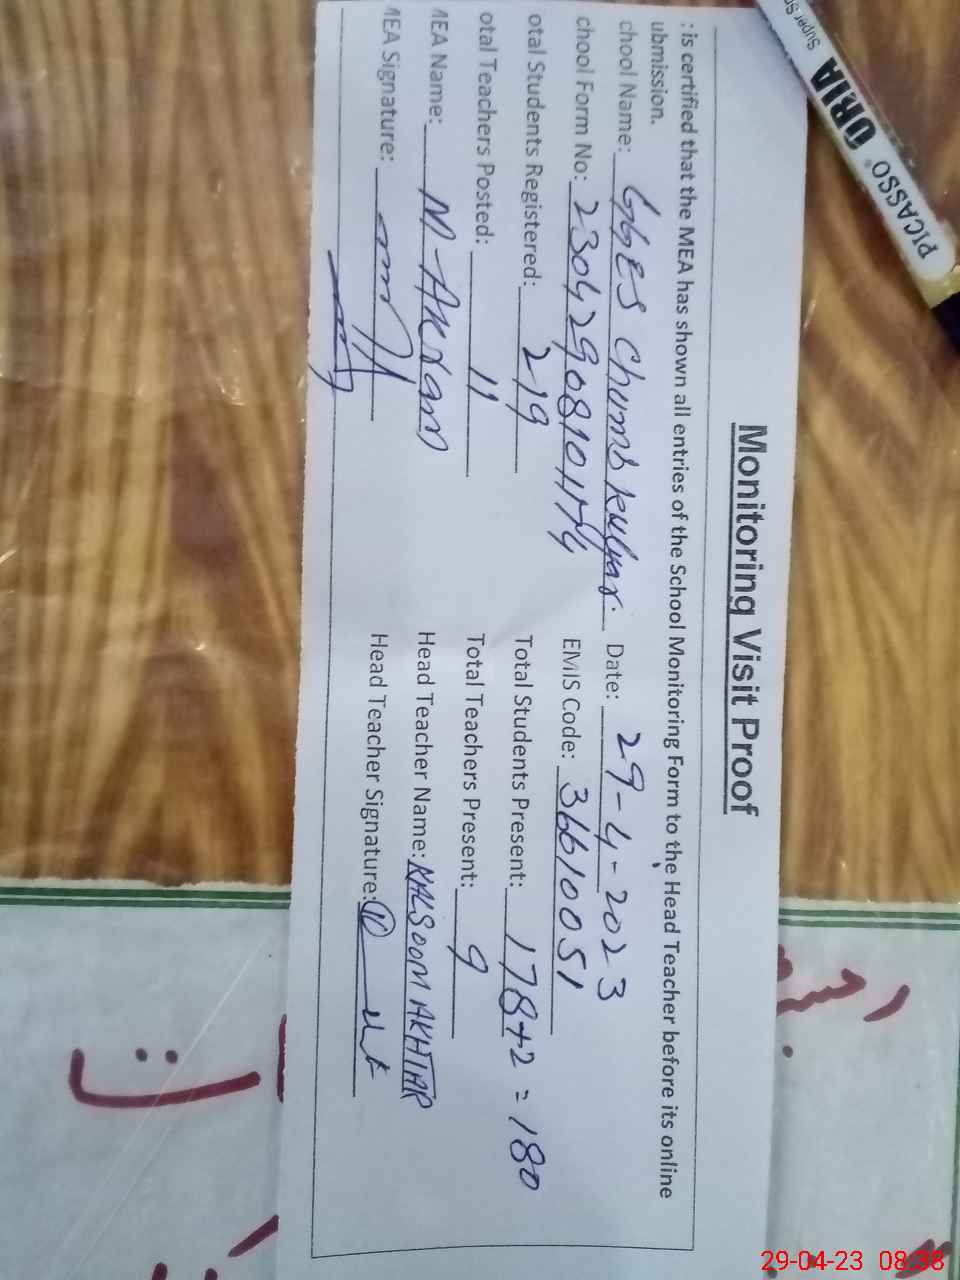 Monitoring Visit Proof
: is certified that the MEA has shown all entries of the School Monitoring Form to the Head Teacher before its online
ubmission.
chool Name: GGES Chumb kulyar. Date: 29-4-2023
chool Form No: 23042908101174 EMIS Code: 36610051
otal Students Registered: 219 Total Students Present: 178+2 = 180
otal Teachers Posted: 11 Total Teachers Present: 9
MEA Name: M-Akram Head Teacher Name: KALSOOM AKHTAR
MEA Signature: Head Teacher Signature:
PICASSO ORIA
Super
29-04-23 08:38